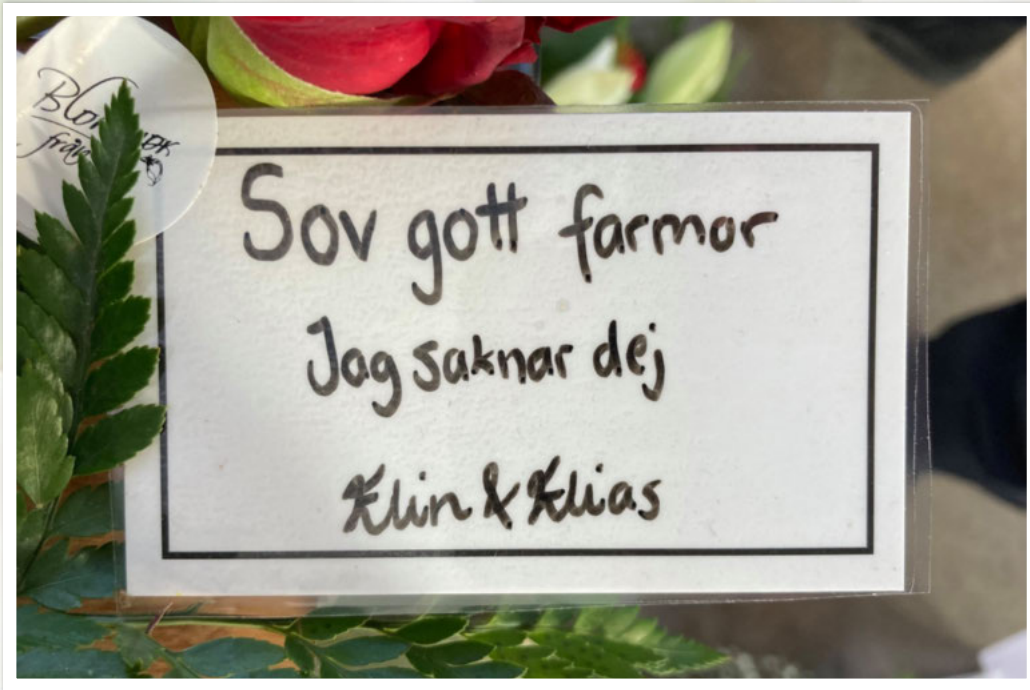 Blom
från
Sov gott farmor
Jag saknar dej
Elin & Elias